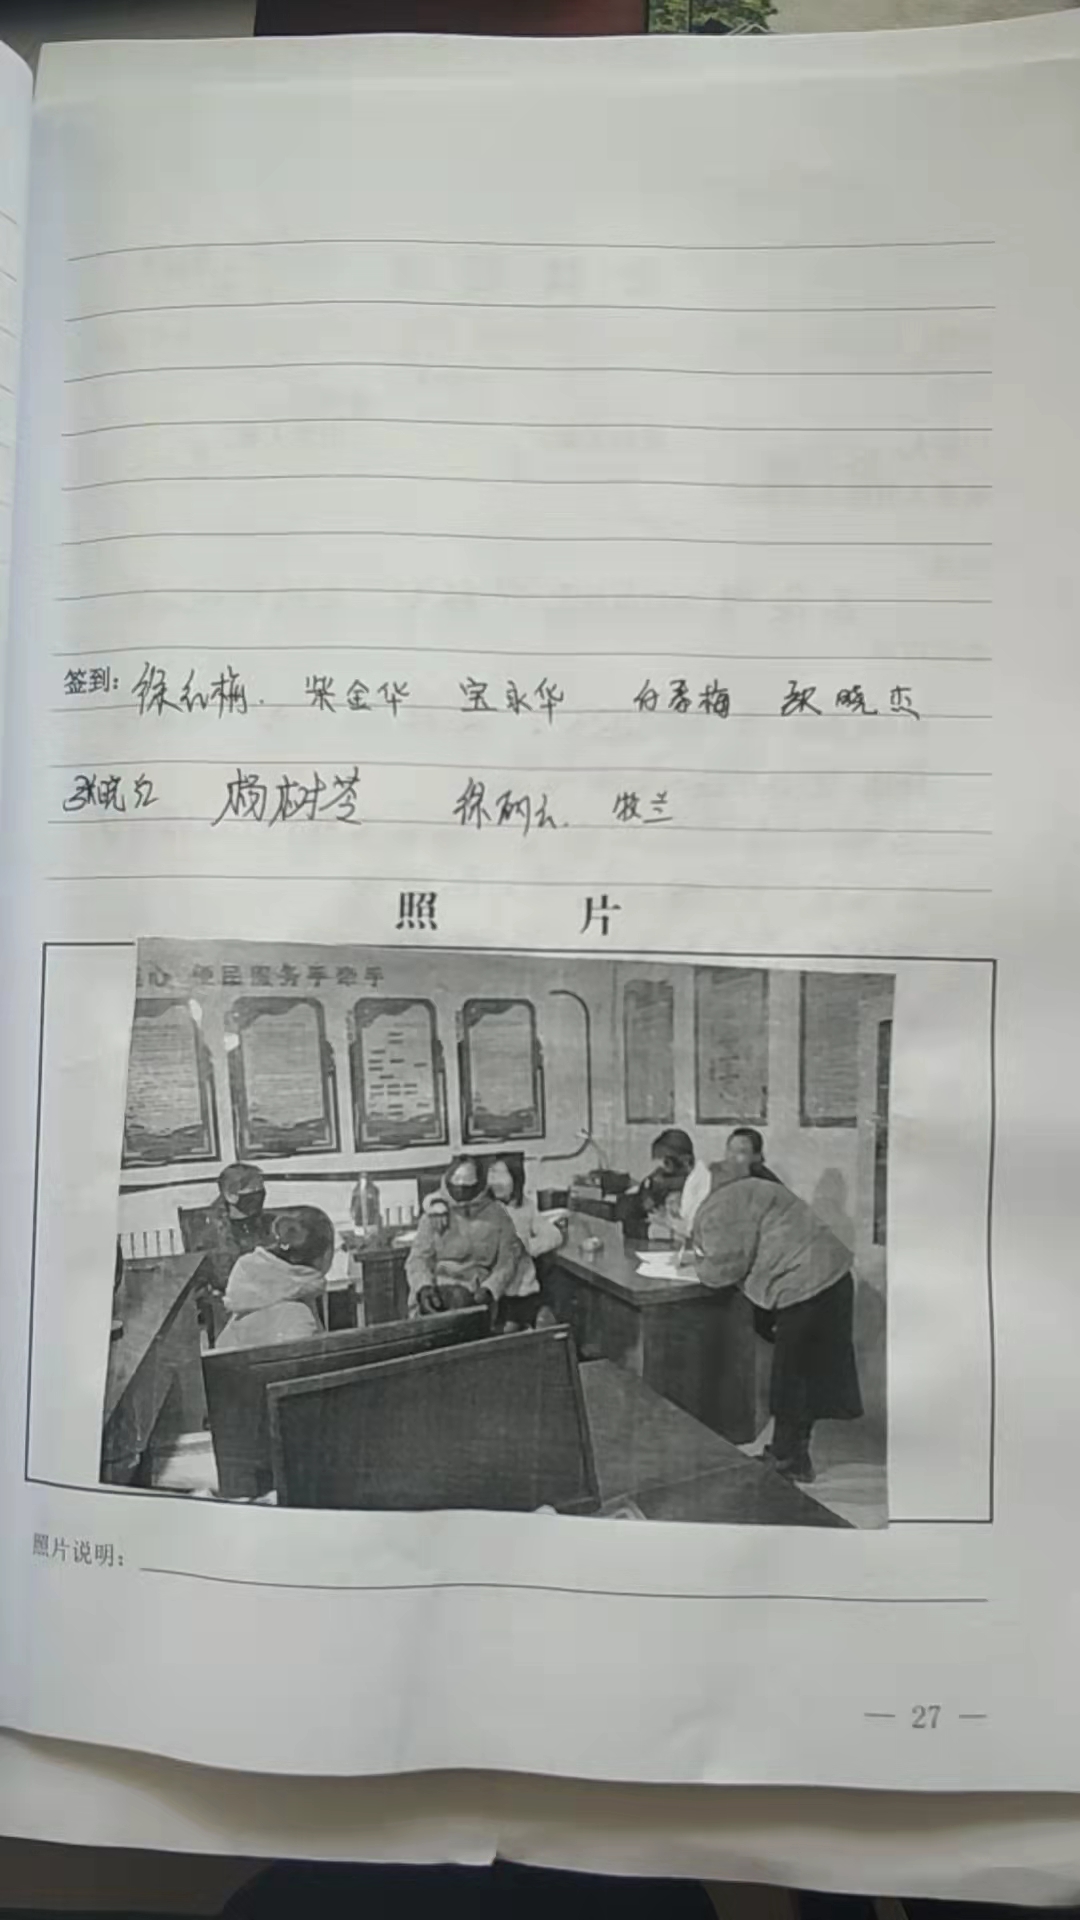 签到：徐红梅. 柴金华 宝永华 白春梅 耿晓杰
张晓红 杨树苓 徐丽云. 牧兰
照 片
心 便民服务手牵手
照片说明：
— 27 —